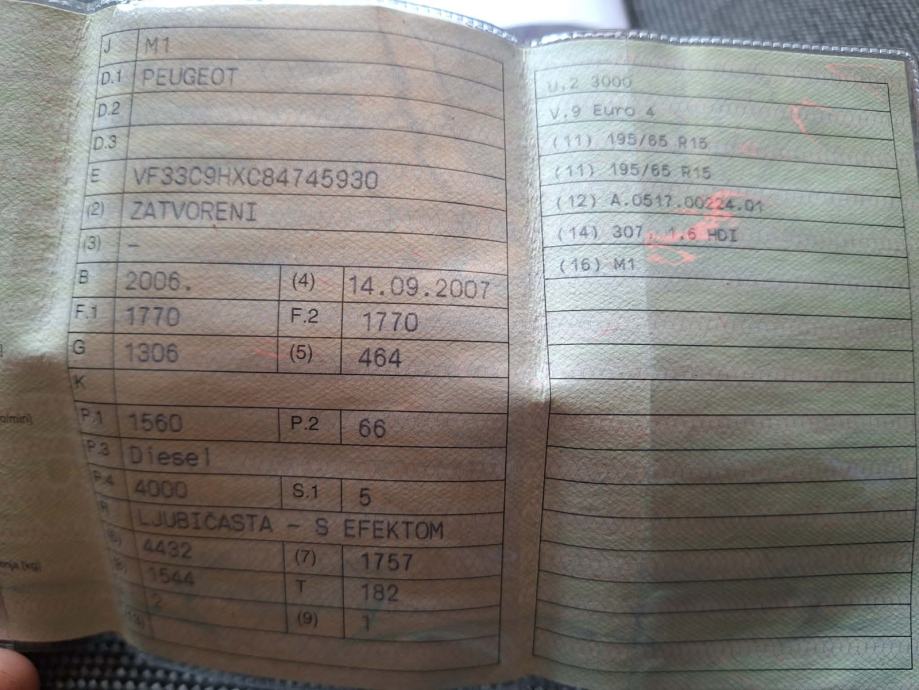 J M1
D.1 PEUGEOT
D.2
D.3
E VF33C9HXC84745930
(2) ZATVORENI
(3) -
B 2006. (4) 14.09.2007
F.1 1770 F.2 1770
G 1306 (5) 464
K
P.1 1560 P.2 66
P.3 Diesel
P.4 4000 S.1 5
R LJUBIČASTA - S EFEKTOM
(6) 4432 (7) 1757
(8) 1544 T 182
2 (9) 1
U.2 3000
V.9 Euro 4
(11) 195/65 R15
(11) 195/65 R15
(12) A.0517.00224.01
(14) 307, 1.6 HDI
(16) M1